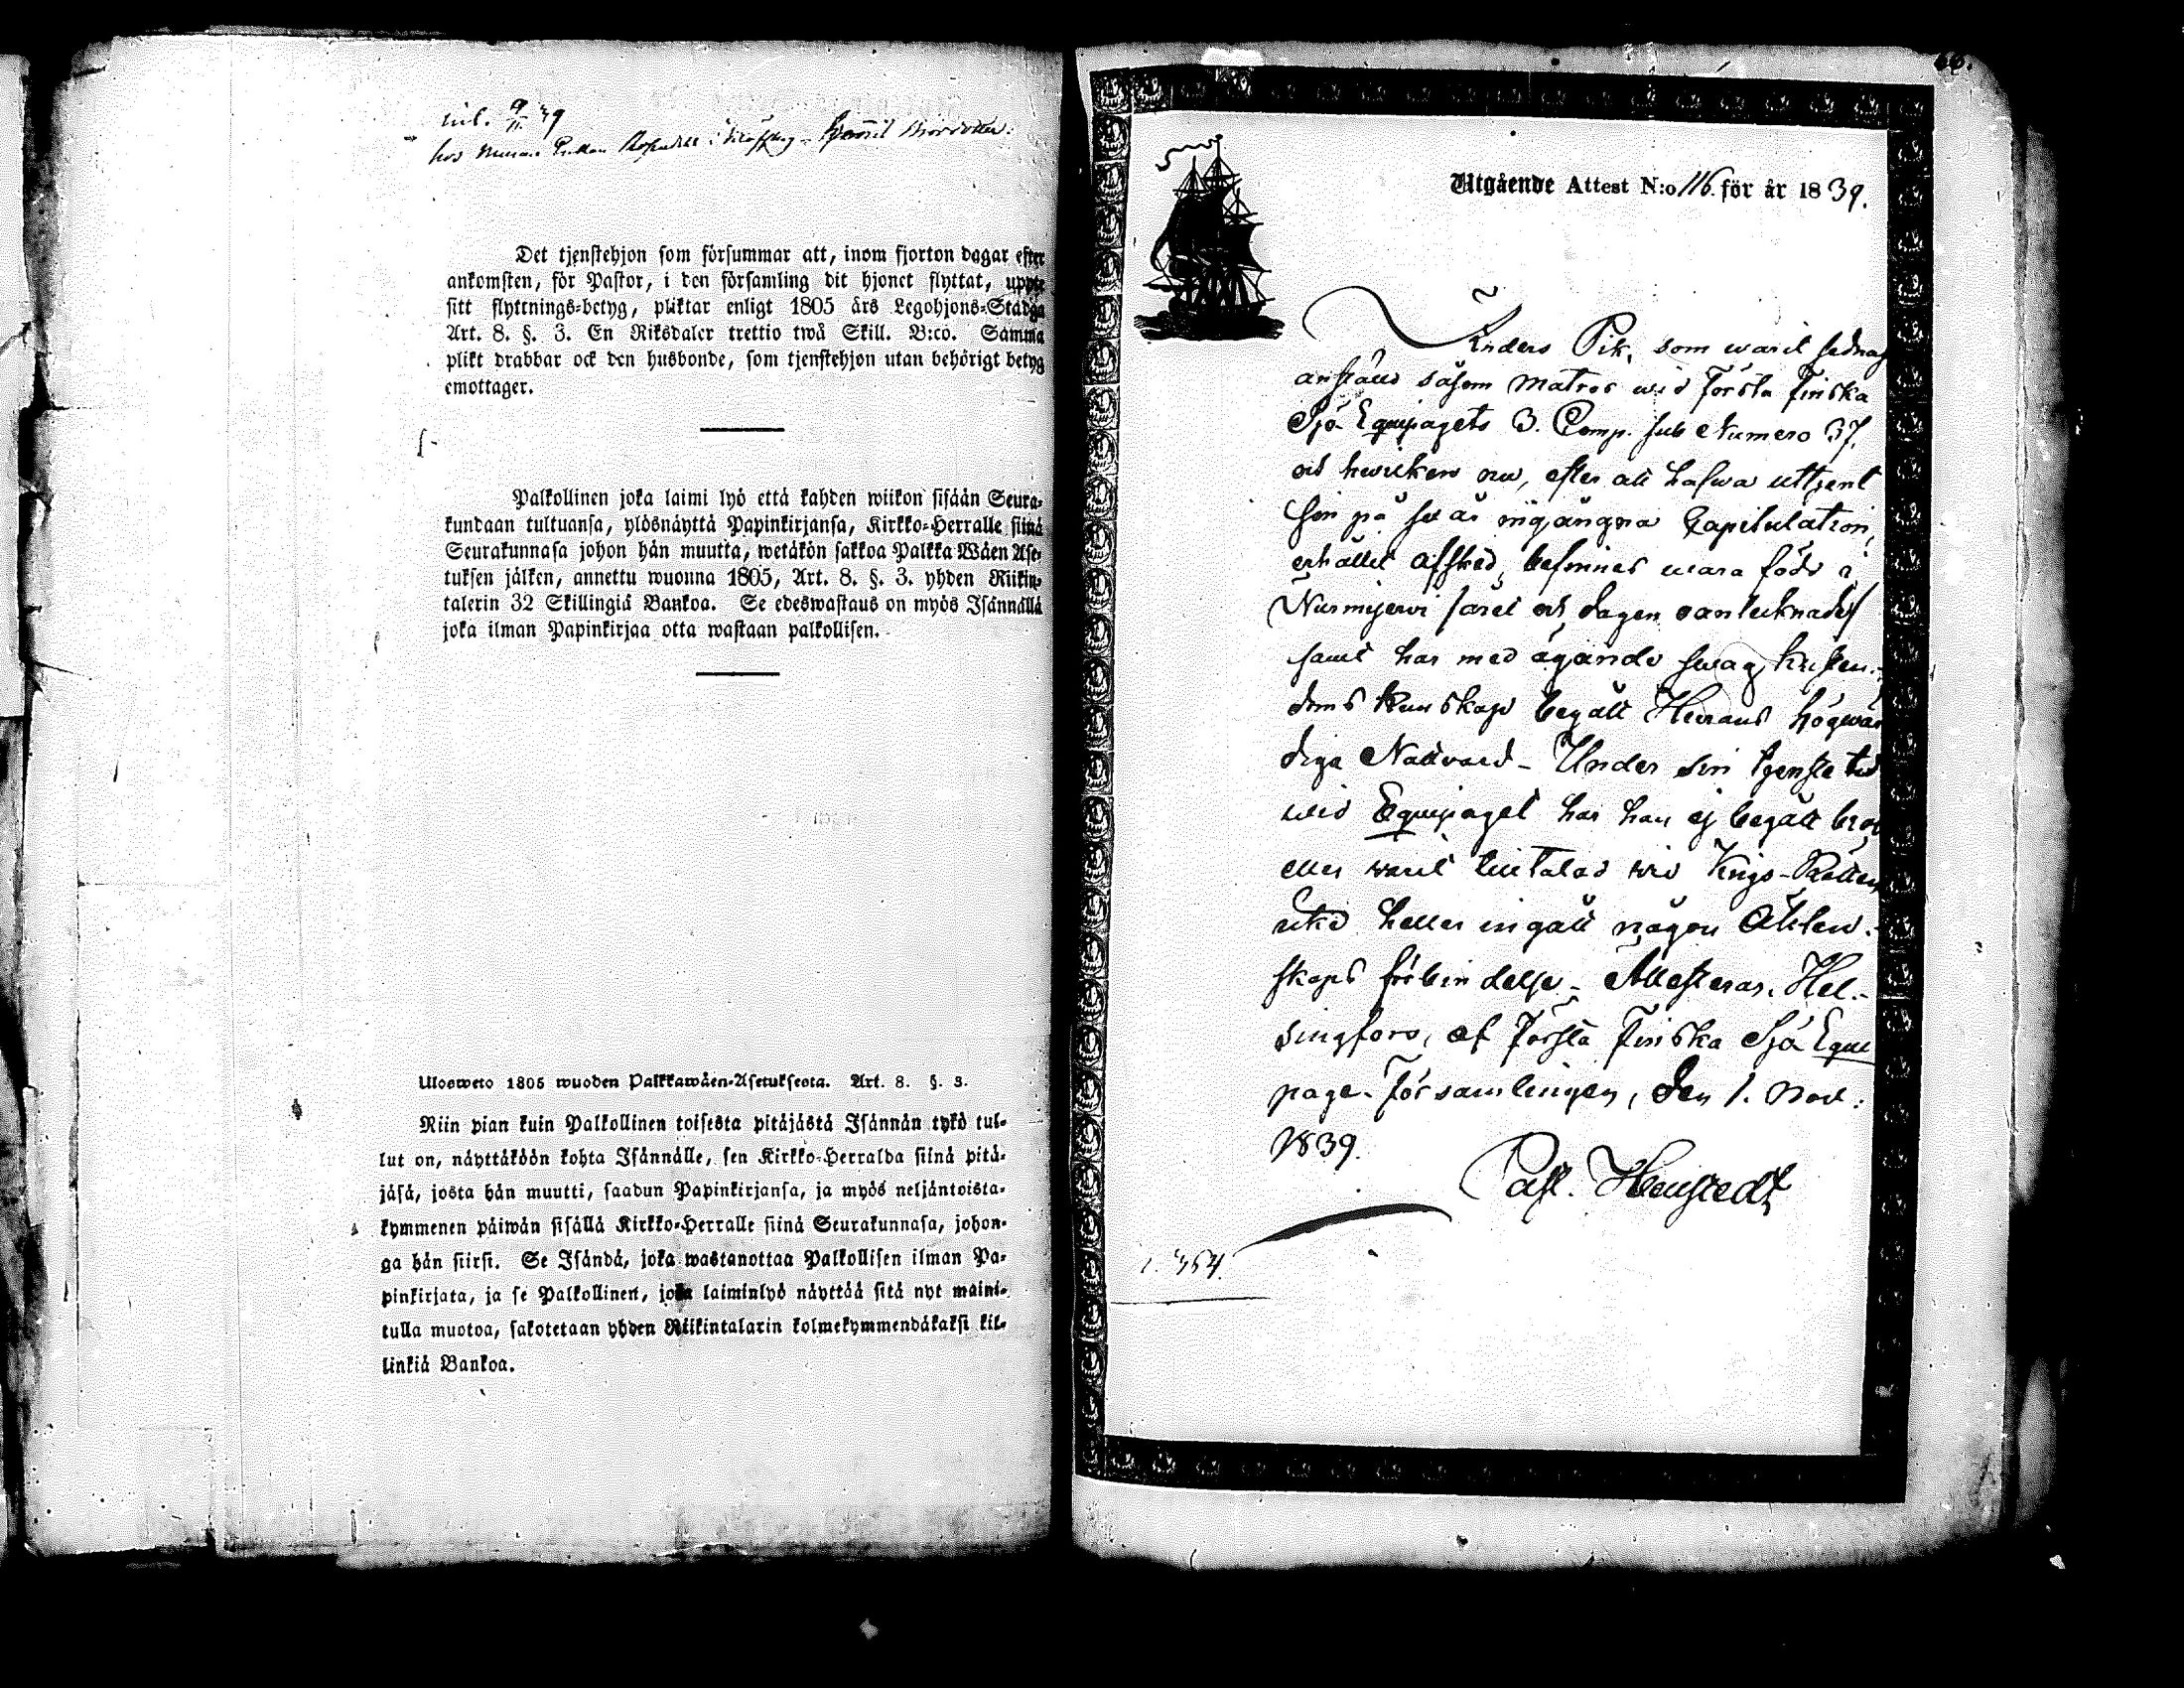 inl. 9/11 39
hos
Det tjenstehjon som försummar att, inom fjorton dagar efter
ankomsten, för Pastor, i den församling dit hjonet flyttat, uppte
sitt flyttnings-betyg, pliktar enligt 1805 års Legohjons-Stadga
Art. 8. §. 3. En Riksdaler trettio twå Skill. B:co. Samma
plikt drabbar ock den husbonde, som tjenstehjon utan behörigt betyg
emottager.
Palkollinen joka laimi lyö että kahden wiikon sisään Seura-
kundaan tultuansa, ylösnäyttä Papinkirjansa, Kirkko-Herralle siinä
Seurakunnasa johon hän muutta, wetäkön sakkoa Palkka Wäen Ase-
tuksen jälken, annettu wuonna 1805, Art. 8. §. 3. yhden Riikin-
talerin 32 Skillingiä Bankoa. Se edeswastaus on myös Isännällä
joka ilman Papinkirjaa otta wastaan palkollisen.
Ulosweto 1805 wuoden Palkkawäen-Asetuksesta. Art. 8. §. 3.
Niin pian kuin Palkollinen toisesta pitäjästä Isännän tykö tul-
lut on, näyttäköön kohta Isännälle, sen Kirkko-Herralda siinä pitä-
jäsä, josta hän muutti, saadun Papinkirjansa, ja myös neljäntoista-
kymmenen päiwän sisällä Kirkko-Herralle siinä Seurakunnasa, johon-
ga hän siirsi. Se Isändä, joka wastanottaa Palkollisen ilman Pa-
pinkirjata, ja se Palkollinen, joka laiminlyö näyttää sitä nyt maini-
tulla muotoa, sakotetaan yhden Riikintalarin kolmekymmendäkaksi kil-
linkiä Bankoa.
66.
Utgående Attest N:o 116. för år 1839.
Anders Pik, som warit sednast
anstäld såsom Matros wid Första Finska
Sjö-Equipagets 3. Comp. sub Numero 37.
och hwilken nu, efter att hafwa uttjent
sin på sex år ingångna Capitulation,
erhållit afsked, befinnes wara född i
Nurmijerwi
samt har med ägande swag Kristen-
doms kunskap begått Herrans högwär
diga Nattvard - Under sin tjenste tid
wid Equipaget har han ej begått brott
eller warit tilltalad wid Krigs-Rätten
icke heller ingått någon Äkten-
skaps förbindelse - Attesteras. Hel-
singfors, af Första Finska Sjö Equi
page-Församlingen, den 1. Nov:
1839.
Past. Henstedt
354.